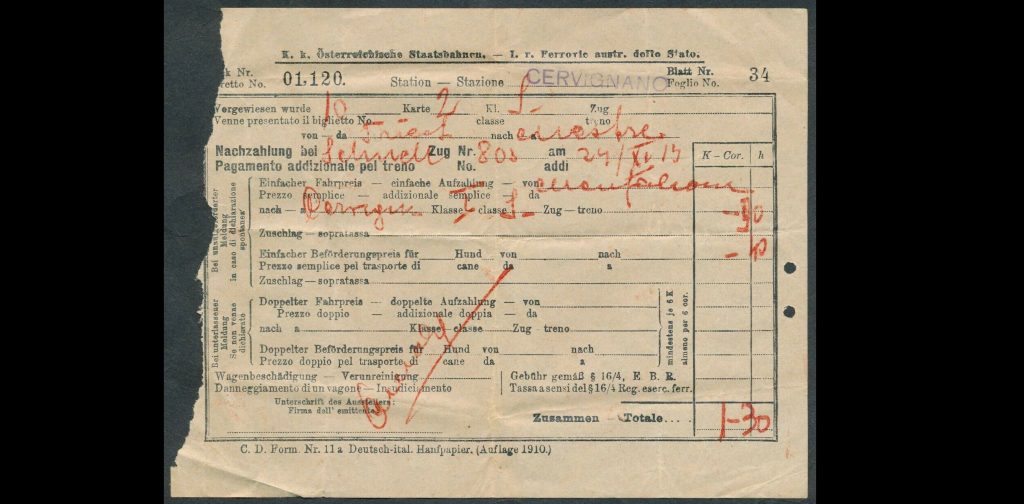 K. k. Österreichische Staatsbahnen. — I. r. Ferrovie austr. dello Stato.
k Nr. 01,120. Station — Stazione CERVIGNANO Blatt Nr. 34
retto No. Foglio No.
Vorgewiesen wurde 10 Karte 2 Kl. S. Zug
Venne presentato il biglietto No. classe treno
von — da Triest nach a Mestre
Nachzahlung bei Zug Nr. 803 am 24/XI 13
Pagamento addizionale pel treno No. addi
K — Cor. h
Bei unaufgeforderter Meldung
In caso di dichiarazione spontanea
Einfacher Fahrpreis — einfache Aufzahlung — von
Prezzo semplice — addizionale semplice — da
nach — a Klasse I classe S. Zug — treno
Zuschlag — sopratassa
Einfacher Beförderungspreis für Hund von nach
Prezzo semplice pel trasporte di cane da a
Zuschlag — sopratassa
Bei unterlassener Meldung
Se non venne dichiarato
Doppelter Fahrpreis — doppelte Aufzahlung — von
Prezzo doppio — addizionale doppia — da
nach a Klasse classe Zug - treno
Doppelter Beförderungspreis für Hund von nach
Prezzo doppio pel trasporte di cane da a
mindestens je 6 K
almeno per 6 cor.
Wagenbeschädigung — Verunreinigung
Danneggiamento di un vagone — Insudiciamento
Gebühr gemäß § 16/4, E. B. R.
Tassa a sensi del § 16/4 Reg. eserc. ferr.
Unterschrift des Ausstellers:
Firma dell' emittente:
Zusammen — Totale 1-30
C. D. Form. Nr. 11 a Deutsch-ital. Hanfpapier. (Auflage 1910.)